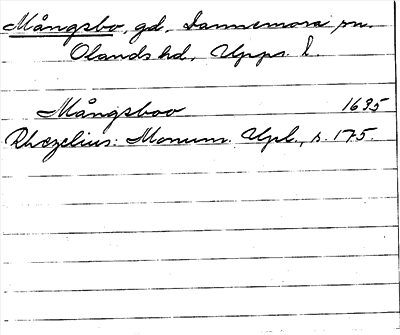 Mångsbo, gd, Dannemora sn.
Olands hd, Upps. l.
Mångsboo 1635
Rhezelius: Monum. Upl., s. 175.